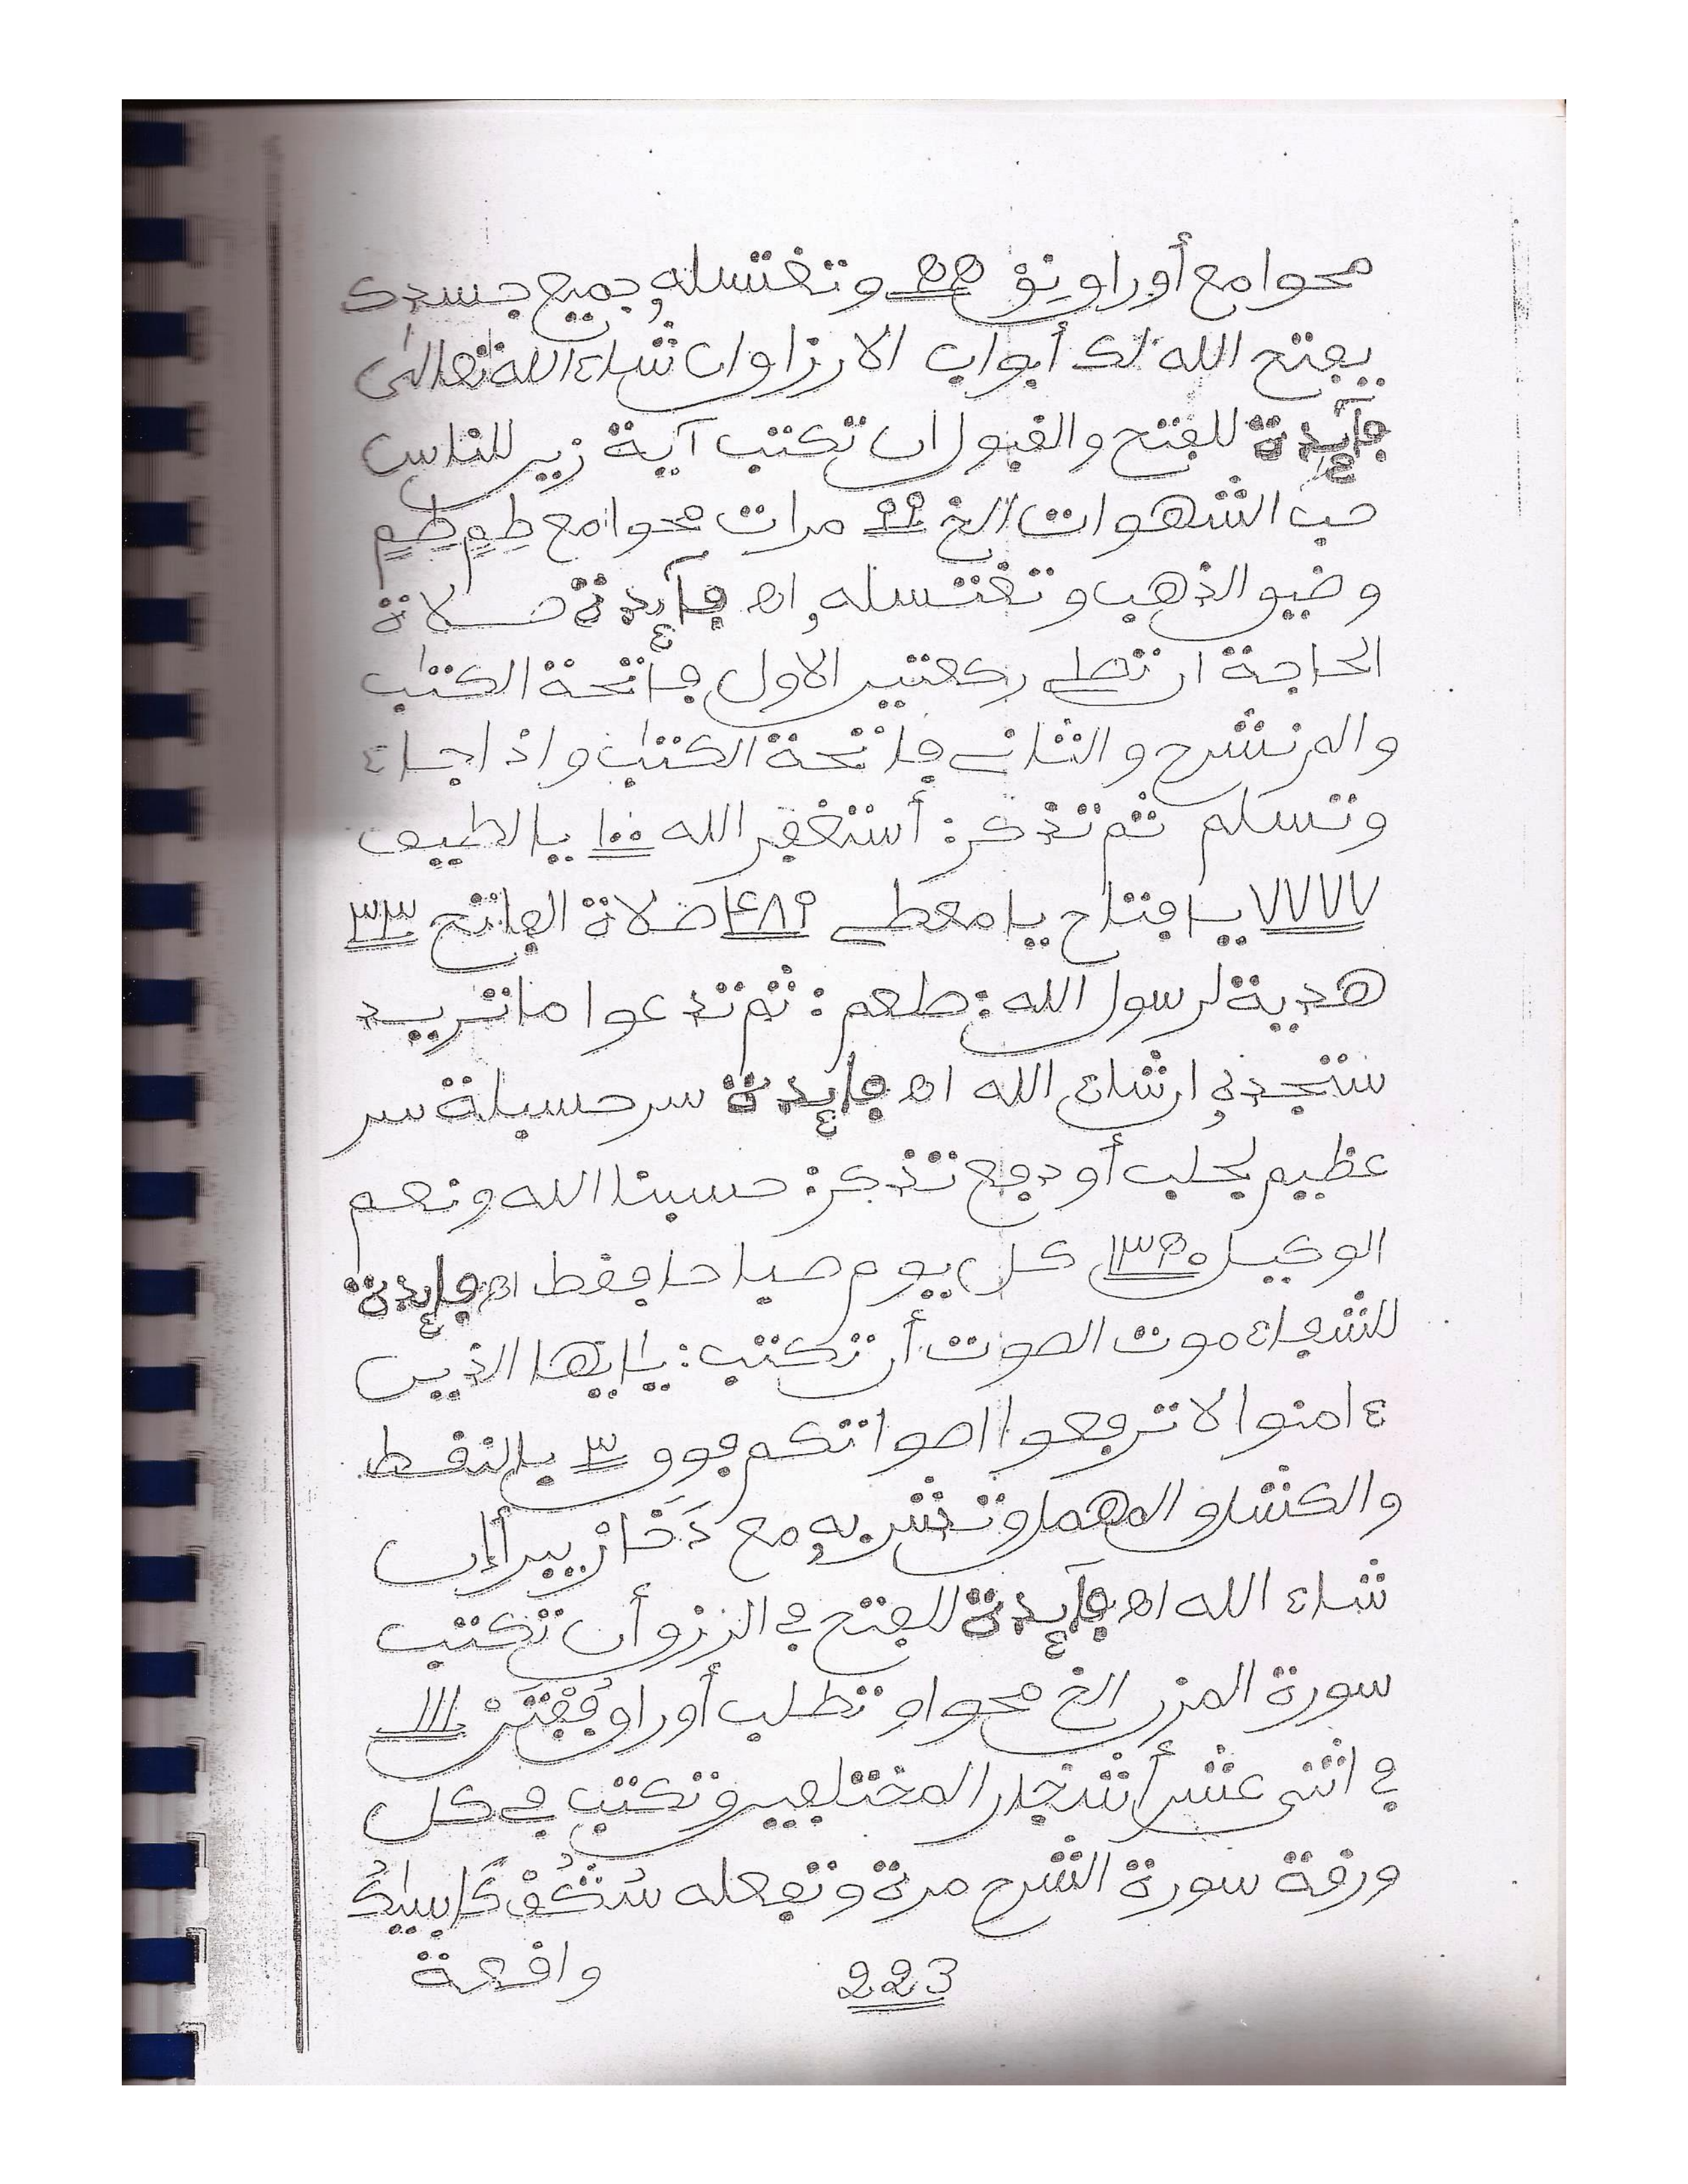 محوا مع أوراق نِؤ ٥٥ وتغتسله جميع جسدك
يفتح الله لك أبواب الارزاق ان شاء الله تعالى
فآئدة للفتح والقبول ان تكتب آية زين للناس
حب الشهوات الخ ٩٩ مرات محوا مع طِمٍ طِمٍ
وضيو الذهب وتغتسله اه فآئدة صلاة
الحاجة ان تصلى ركعتين الاول فاتحة الكتاب
والم نشرح والثانى فاتحة الكتاب واذا جاء
وتسلم ثم تذكر: أستغفر الله ١٠٠ يا لطيف
٧٧٧٧ يا فتاح يا معطى ٤٨٩ صلاة الفاتح ٣٣
هدية لرسول الله: صلعم: ثم تدعوا ما تريد
ستجدنى ان شاء الله اه فائدة سر حسبلة سر
عظيم لجلب أو دفع تذكر: حسبنا الله ونعم
الوكيل ١٣٥٠ كل يوم صباحا فقط اه فائدة
للشفاء موت الصوت أن تكتب: يايها الذين
ءامنوا لا ترفعوا اصواتكم فوق ٣ بالنقط
والكشلو المهمل وتشربه مع دَخَازْ بيرا إن
شاء الله اه فآئدة للفتح في الرزق أن تكتب
سورة المزر الخ محوا و تطلب أوراق فُفْتَنْ ١١١
في اثنى عشر أشجار المختلفين وتكتب في كل
ورقة سورة الشرح مرة وتفعله سُتُكُفْ كَابيتِكُ
223 واقعة